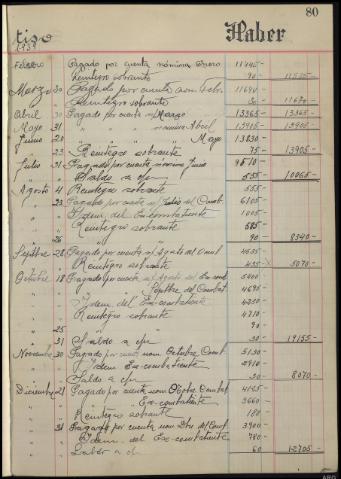 80
Haber
Febrero Pagado por cuenta nómina Enero 11445-
Reintegro sobrante 90-
Marzo 30 Pagado por cuenta nom Febr. 11640-
Reintegro sobrante 30- 11670-
Abril 30 Pagado por cuenta n/ Marzo 13365- 13365-
Mayo 31 " " " nómina Abril 13905-
Junio 20 " " " Mayo 13830-
" Reintegro sobrante 75- 13905-
Julio 31 Pagado por cuenta nómina Junio 9510-
" Saldo a c/n 555- 10065-
Agosto 4 Reintegro sobrante 555-
" 23 Pagado por cuenta n/ Julio del Comb. 6105-
" Idem. del Excombatiente 1005-
" Reintegro sobrante 585-
" 26 90 8340-
Sepbre 28 Pagado por cuenta n/ Agosto del Comb 4635-
" Reintegro sobrante 435- 5070-
Octubre Pagado por cuenta n/ Agosto del Ex comb 5400-
" " " Sepbre del Combat 4695-
" Idem del Ex-combatiente
" Reintegro sobrante 4710-
" 25 90-
" 31 Saldo a c/n 30- 19155-
Noviembre 30 Pagado por cuenta nom Octubre Comb. 5130-
" Idem Ex-combatiente 2910-
" Saldo a c/n 30- 8070-
Diciembre 21 Pagado por cuenta nom Obpbre Combat
" " " Ex-combatiente 3660-
" Reintegro sobrante 180-
" 31 Pagado por cuenta nom Dbre del Comb 3900-
" Idem. del Ex-combatiente 780-
" Saldo a c/ 60 12705-